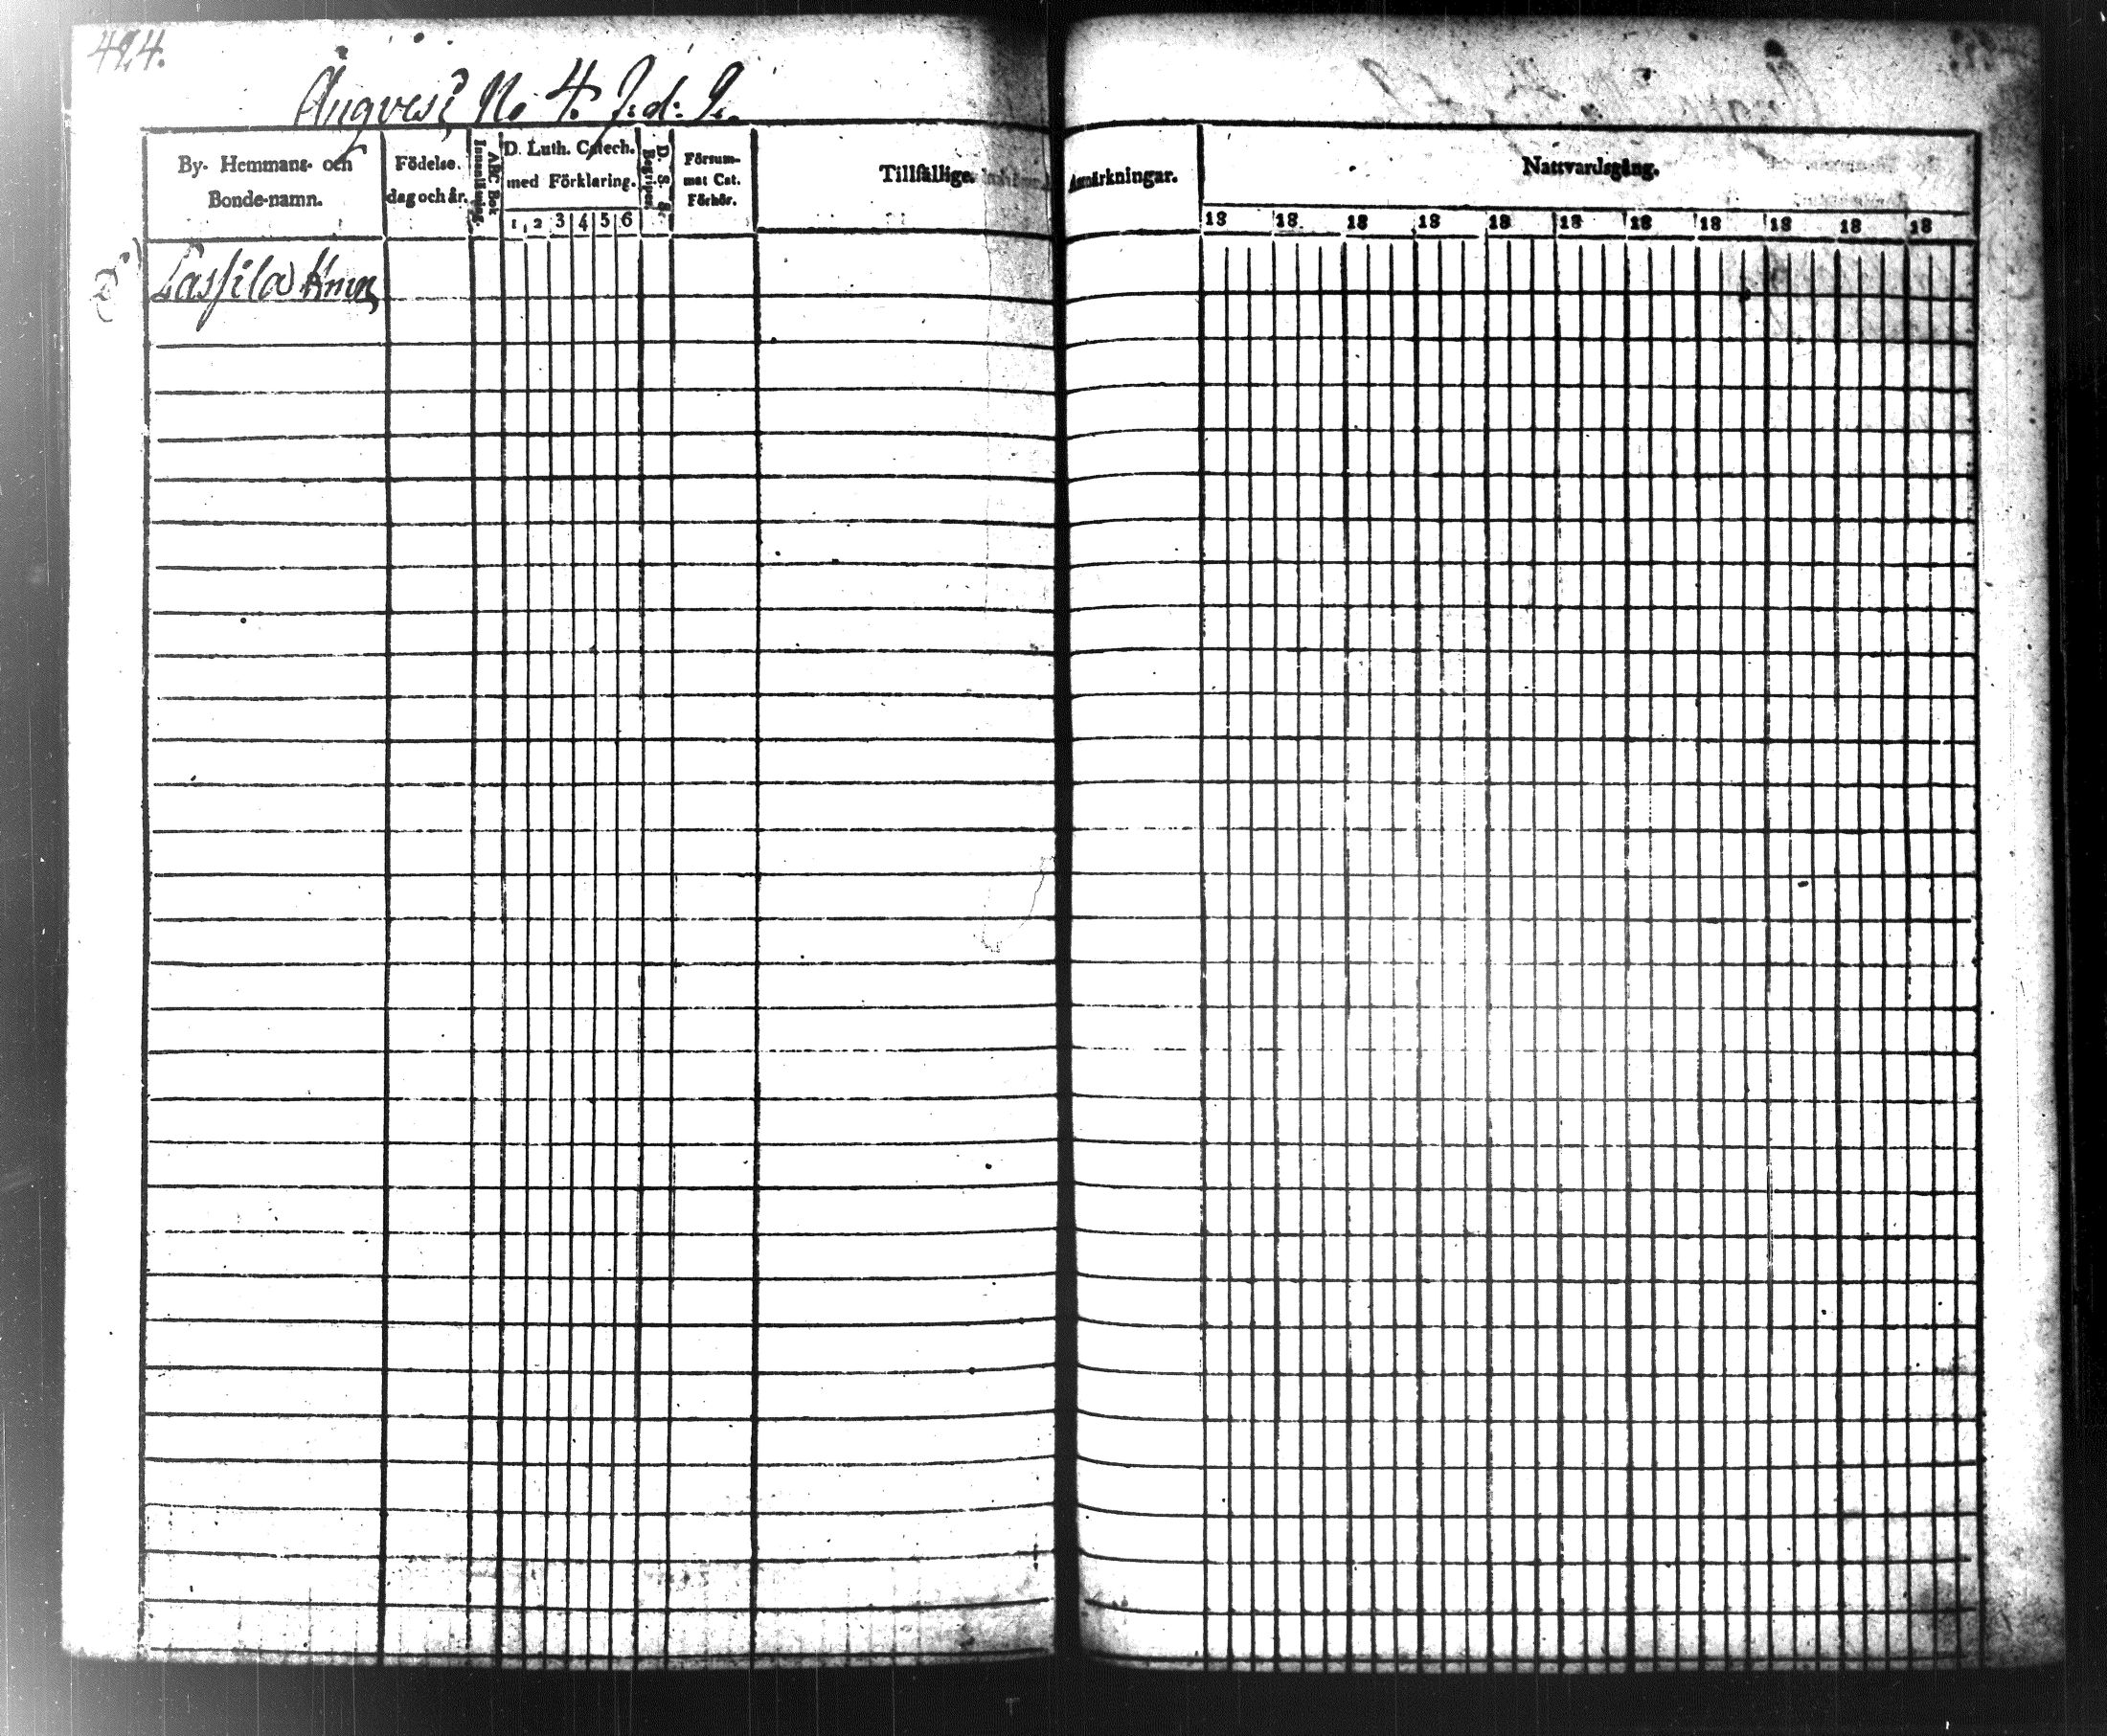 424.
Ängvesi, No 4. J: d: L.
By- Hemmans- och
Bonde-namn.
Födelse-
dag och år.
ABC Bok
Innanläsning.
D. Luth. Catech.
med Förklaring.
1 2 3 4 5 6
D. S. gr.
Begripes.
Försum-
mat Cat.
Förhör.
Tillfällige
Anmärkningar.
Nattvardsgång.
18 18 18 18 18 18 18 18 18 18 18
Lassila Hmn,